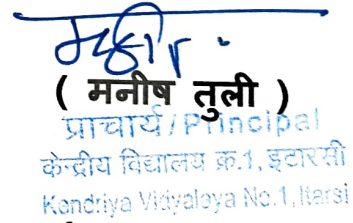 ( मनीष तुली )
प्राचार्य / Principal
केन्द्रीय विद्यालय क्र.1, इटारसी
Kendriya Vidyalaya No.1, Itarsi